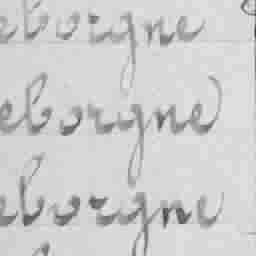 eborgne
eborgne
eborgne